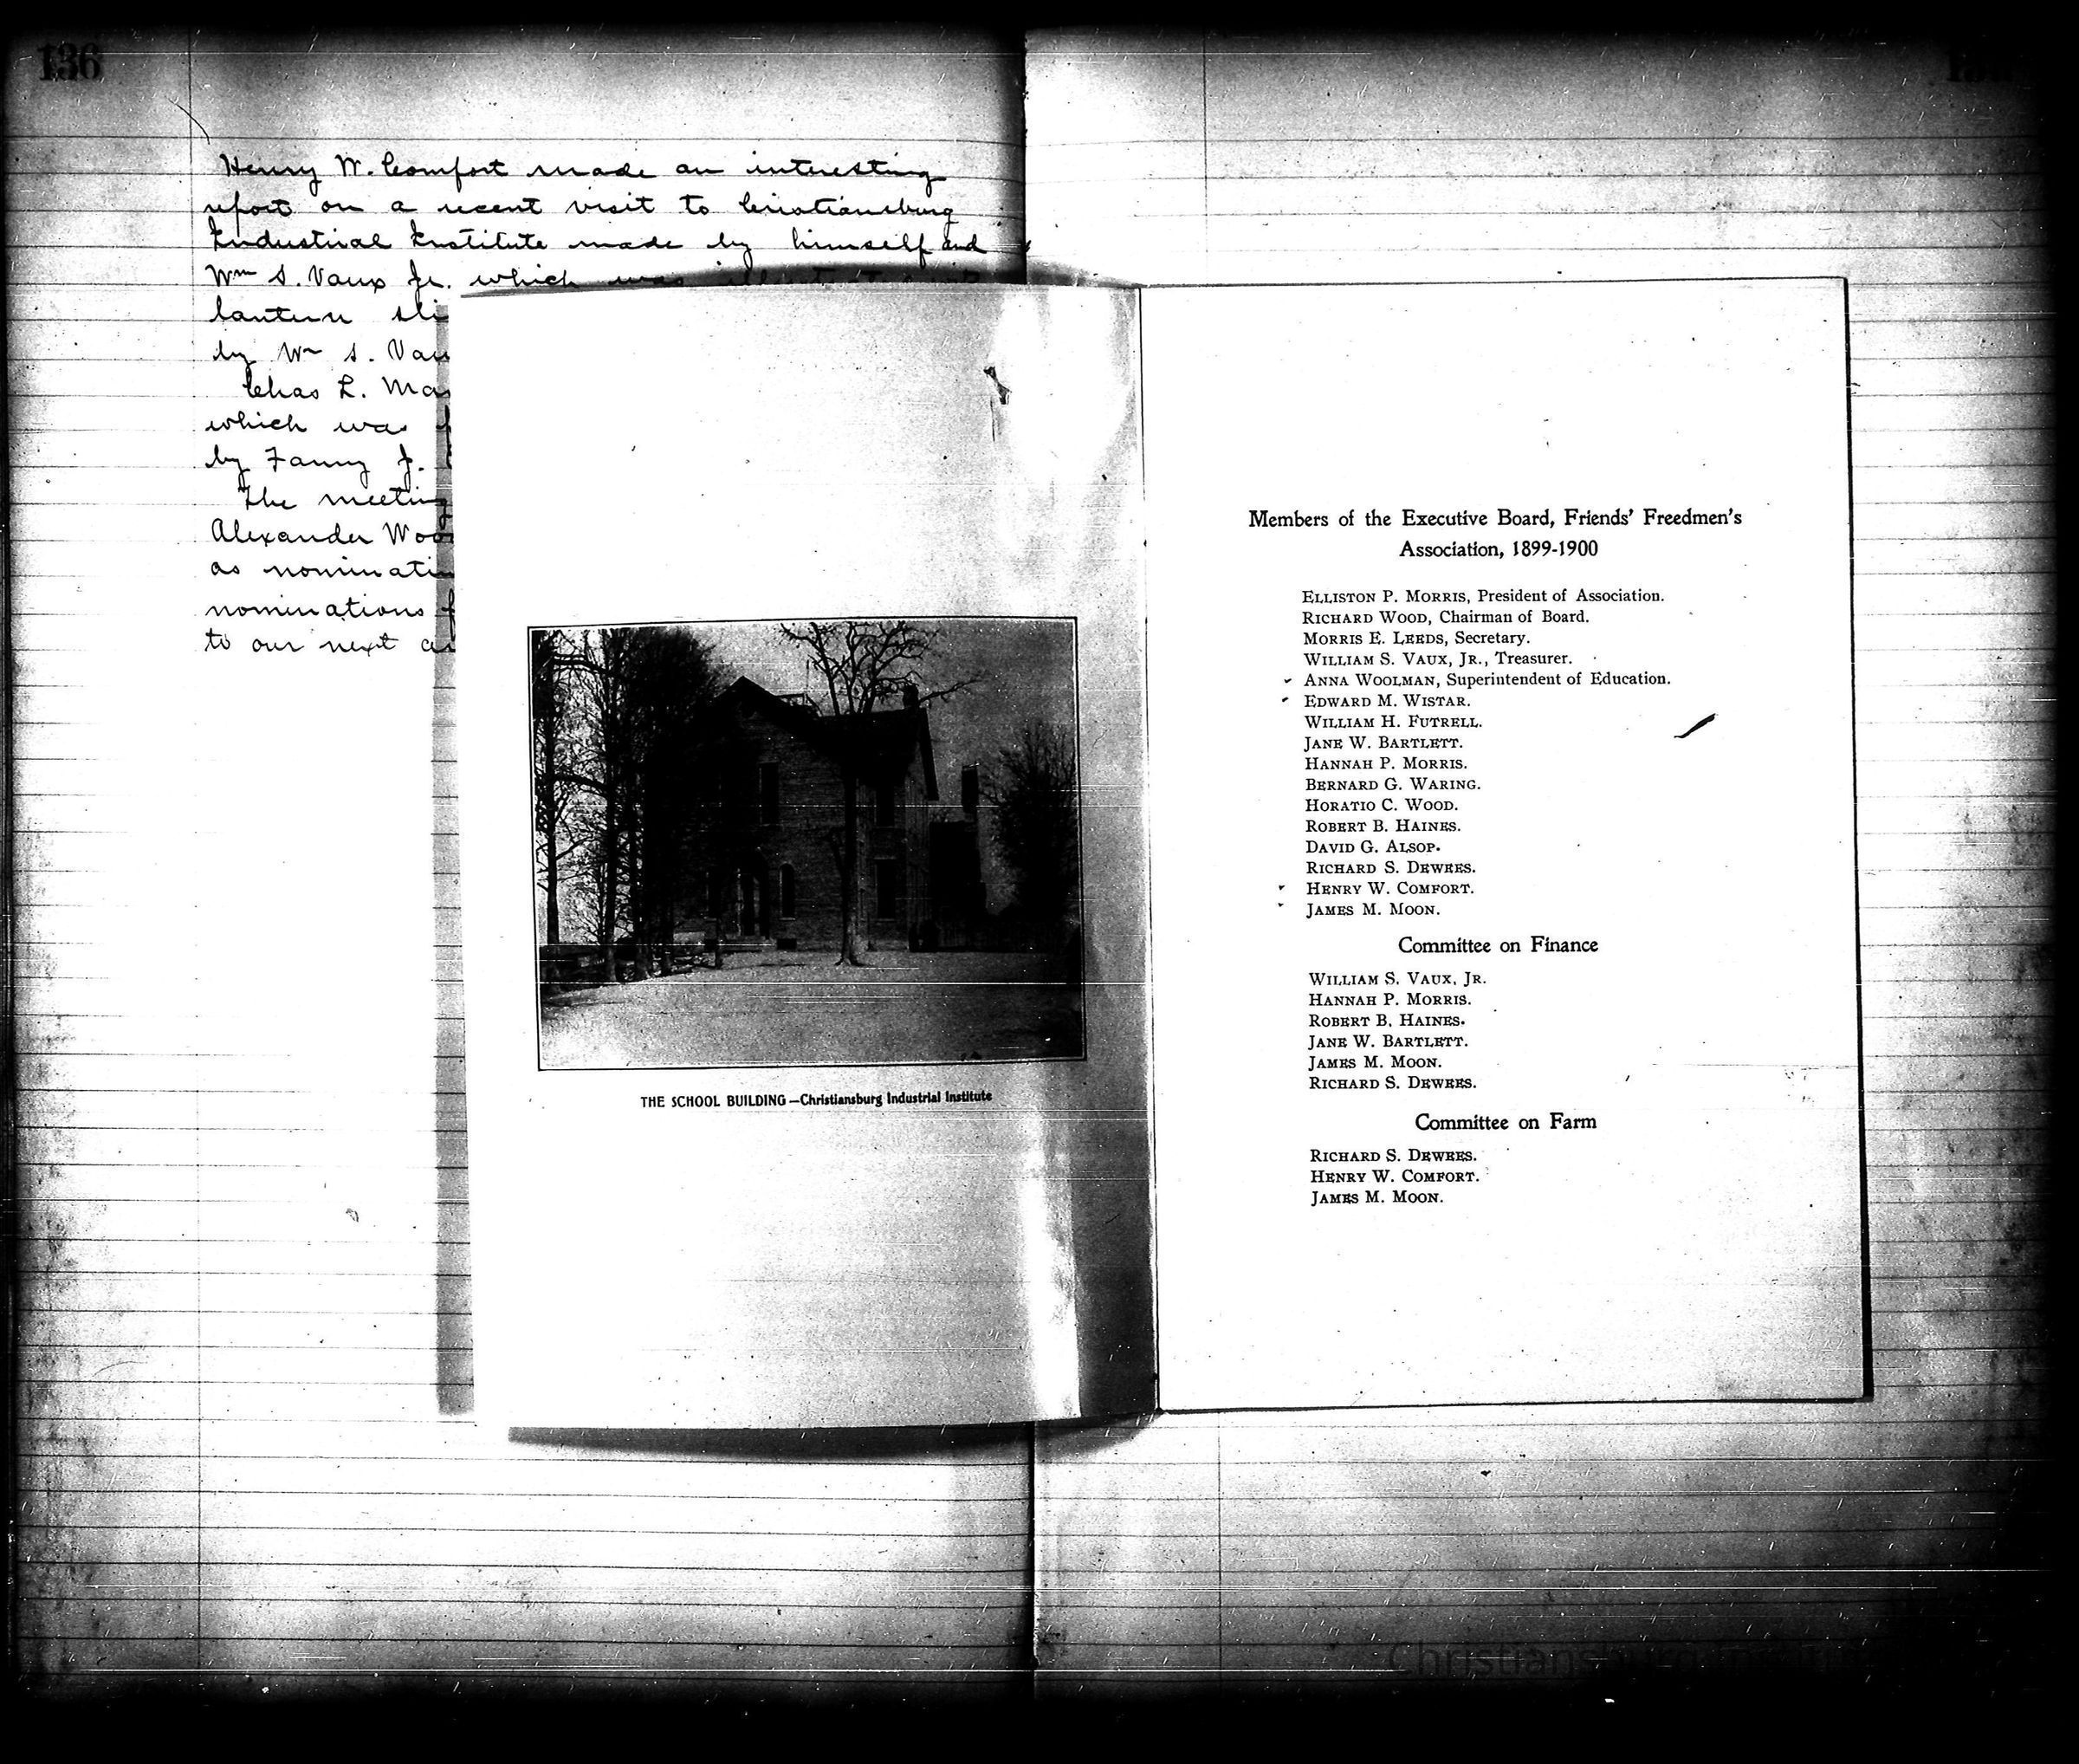 136
Henry W. Comfort made an interesting
report on a recent visit to Christiansburg
Industrial Institute made by himself and
Wm S. Vaux Jr. which was
lantern sli
by Wm S. Vau
Chas L. Mas
which was
by Fanny J.
The meeting
Alexander Woo
as nominatin
nominations f
to our next an
THE SCHOOL BUILDING—Christiansburg Industrial Institute
Members of the Executive Board, Friends' Freedmen's
Association, 1899-1900
ELLISTON P. MORRIS, President of Association.
RICHARD WOOD, Chairman of Board.
MORRIS E. LEEDS, Secretary.
WILLIAM S. VAUX, JR., Treasurer.
ANNA WOOLMAN, Superintendent of Education.
EDWARD M. WISTAR.
WILLIAM H. FUTRELL.
JANE W. BARTLETT.
HANNAH P. MORRIS.
BERNARD G. WARING.
HORATIO C. WOOD.
ROBERT B. HAINES.
DAVID G. ALSOP.
RICHARD S. DEWEES.
HENRY W. COMFORT.
JAMES M. MOON.
Committee on Finance
WILLIAM S. VAUX, JR.
HANNAH P. MORRIS.
ROBERT B. HAINES.
JANE W. BARTLETT.
JAMES M. MOON.
RICHARD S. DEWEES.
Committee on Farm
RICHARD S. DEWEES.
HENRY W. COMFORT.
JAMES M. MOON.
Christiansburg